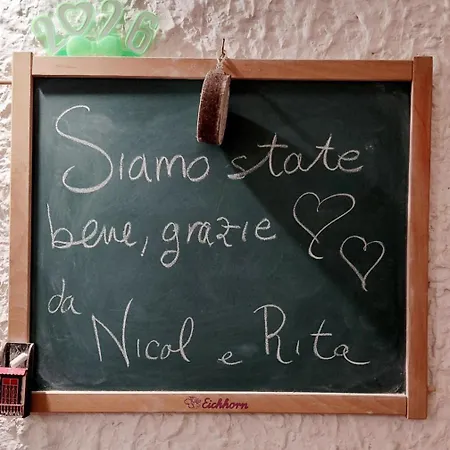 2026
Siamo state
bene, grazie
da Nicol e Rita
Eichhorn